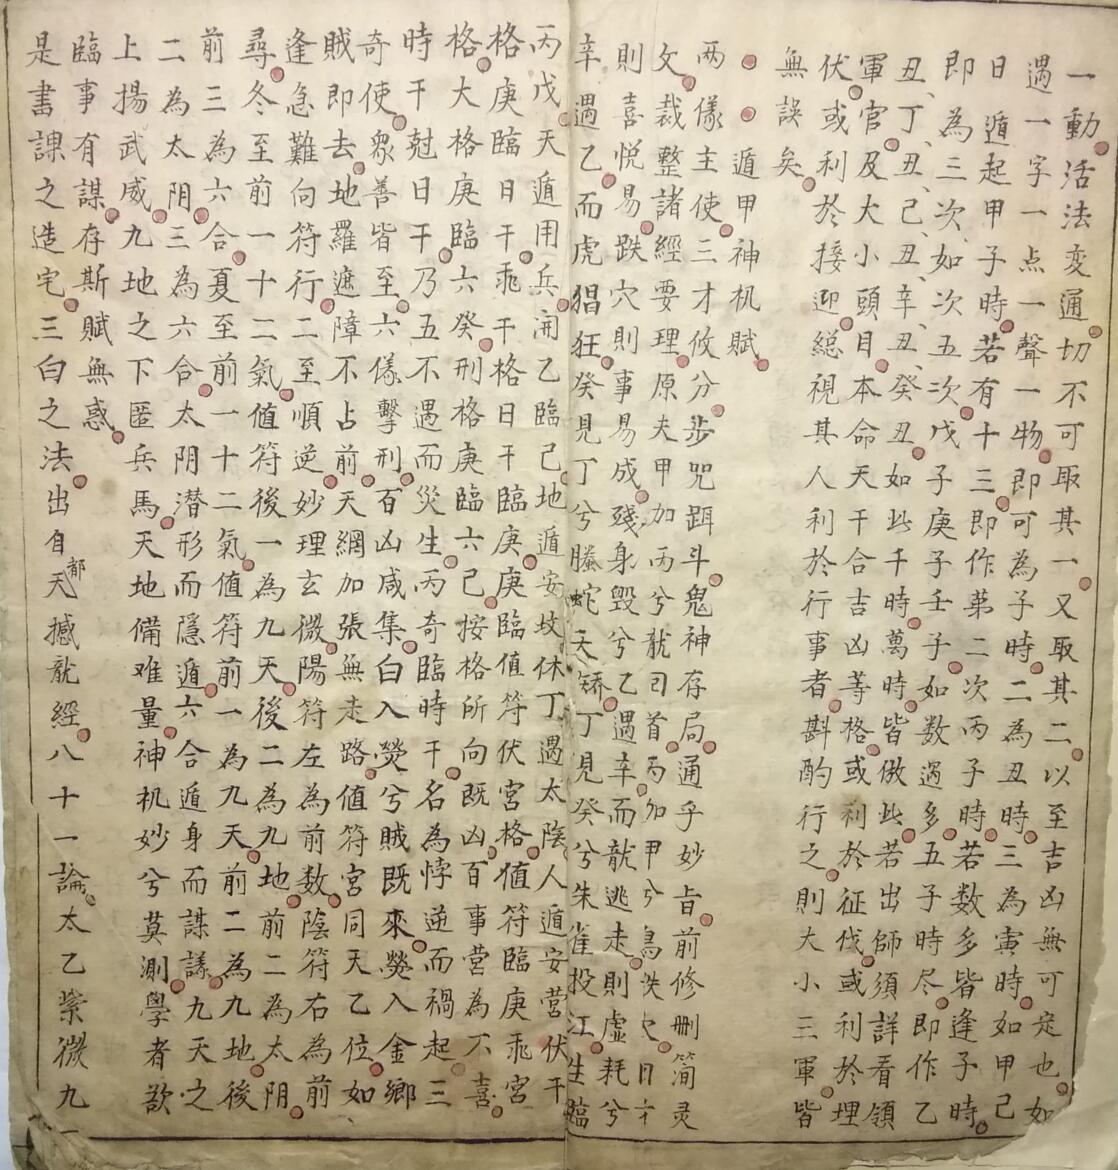 一動活法变通切不可取其一又取其二以至吉凶無可定也如
遇一字一点一聲一物即可為子時二為丑時三為寅時如甲己
日遁起甲子時若有十三即作第二次丙子時若数多皆逢子時
即為三次如次五次戊子庚子壬子如数過多五子時尽即作乙
丑丁丑己丑辛丑癸丑如此千時萬時皆倣此若出師須詳看領
軍官及大小頭目本命天干合吉凶等格或利於征伐或利於埋
伏或利於接迎総視其人利於行事者斟酌行之則大小三軍皆
無誤矣
遁甲神机賦
两儀主使三才攸分步咒跙斗鬼神存局通乎妙旨前修删简灵
文裁整諸經要理原夫甲加丙兮龍囘首丙加甲兮鳥跌
則喜悦易跌穴則事易成殘身毁兮乙遇辛而龍逃走則虚耗兮
辛遇乙而虎猖狂癸見丁兮螣蛇夭矯丁見癸兮朱雀投江生臨
丙戊天遁用兵開乙臨己地遁安坟休丁遇太陰人遁安营伏干
格庚臨日干乖干格日干臨庚庚臨值符伏宮格值符臨庚乖宮
格大格庚臨六癸刑格庚臨六己按格所向既凶百事营為不喜
時干尅日干乃五不遇而災生丙奇臨時干名為悖逆而禍起三
奇使衆善皆至六儀擊刑百凶咸集白入熒兮賊既來熒入金鄉
賊即去地羅遮障不占前天網加張無走路值符宮同天乙位如
逢急難向符行二至順逆妙理玄微陽符左為前数陰符右為前
尋冬至前一十二氣值符後一為九天後二為九地前二為太阴
前三為六合夏至前一十二氣值符前一為九天前二為九地後
二為太阴三為六合太阴潜形而隱遁六合遁身而謀議九天之
上揚武威九地之下匿兵馬天地備难量神机妙兮莫測學者欲
臨事有謀存斯賦無惑
是書課之造宅三白之法出自都天撼龍經八十一論太乙紫微九